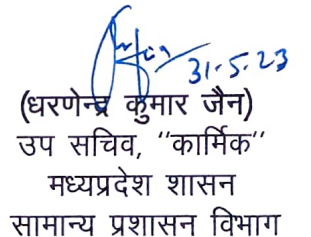 31-5-23
(धरणेन्द्र कुमार जैन)
उप सचिव, "कार्मिक"
मध्यप्रदेश शासन
सामान्य प्रशासन विभाग